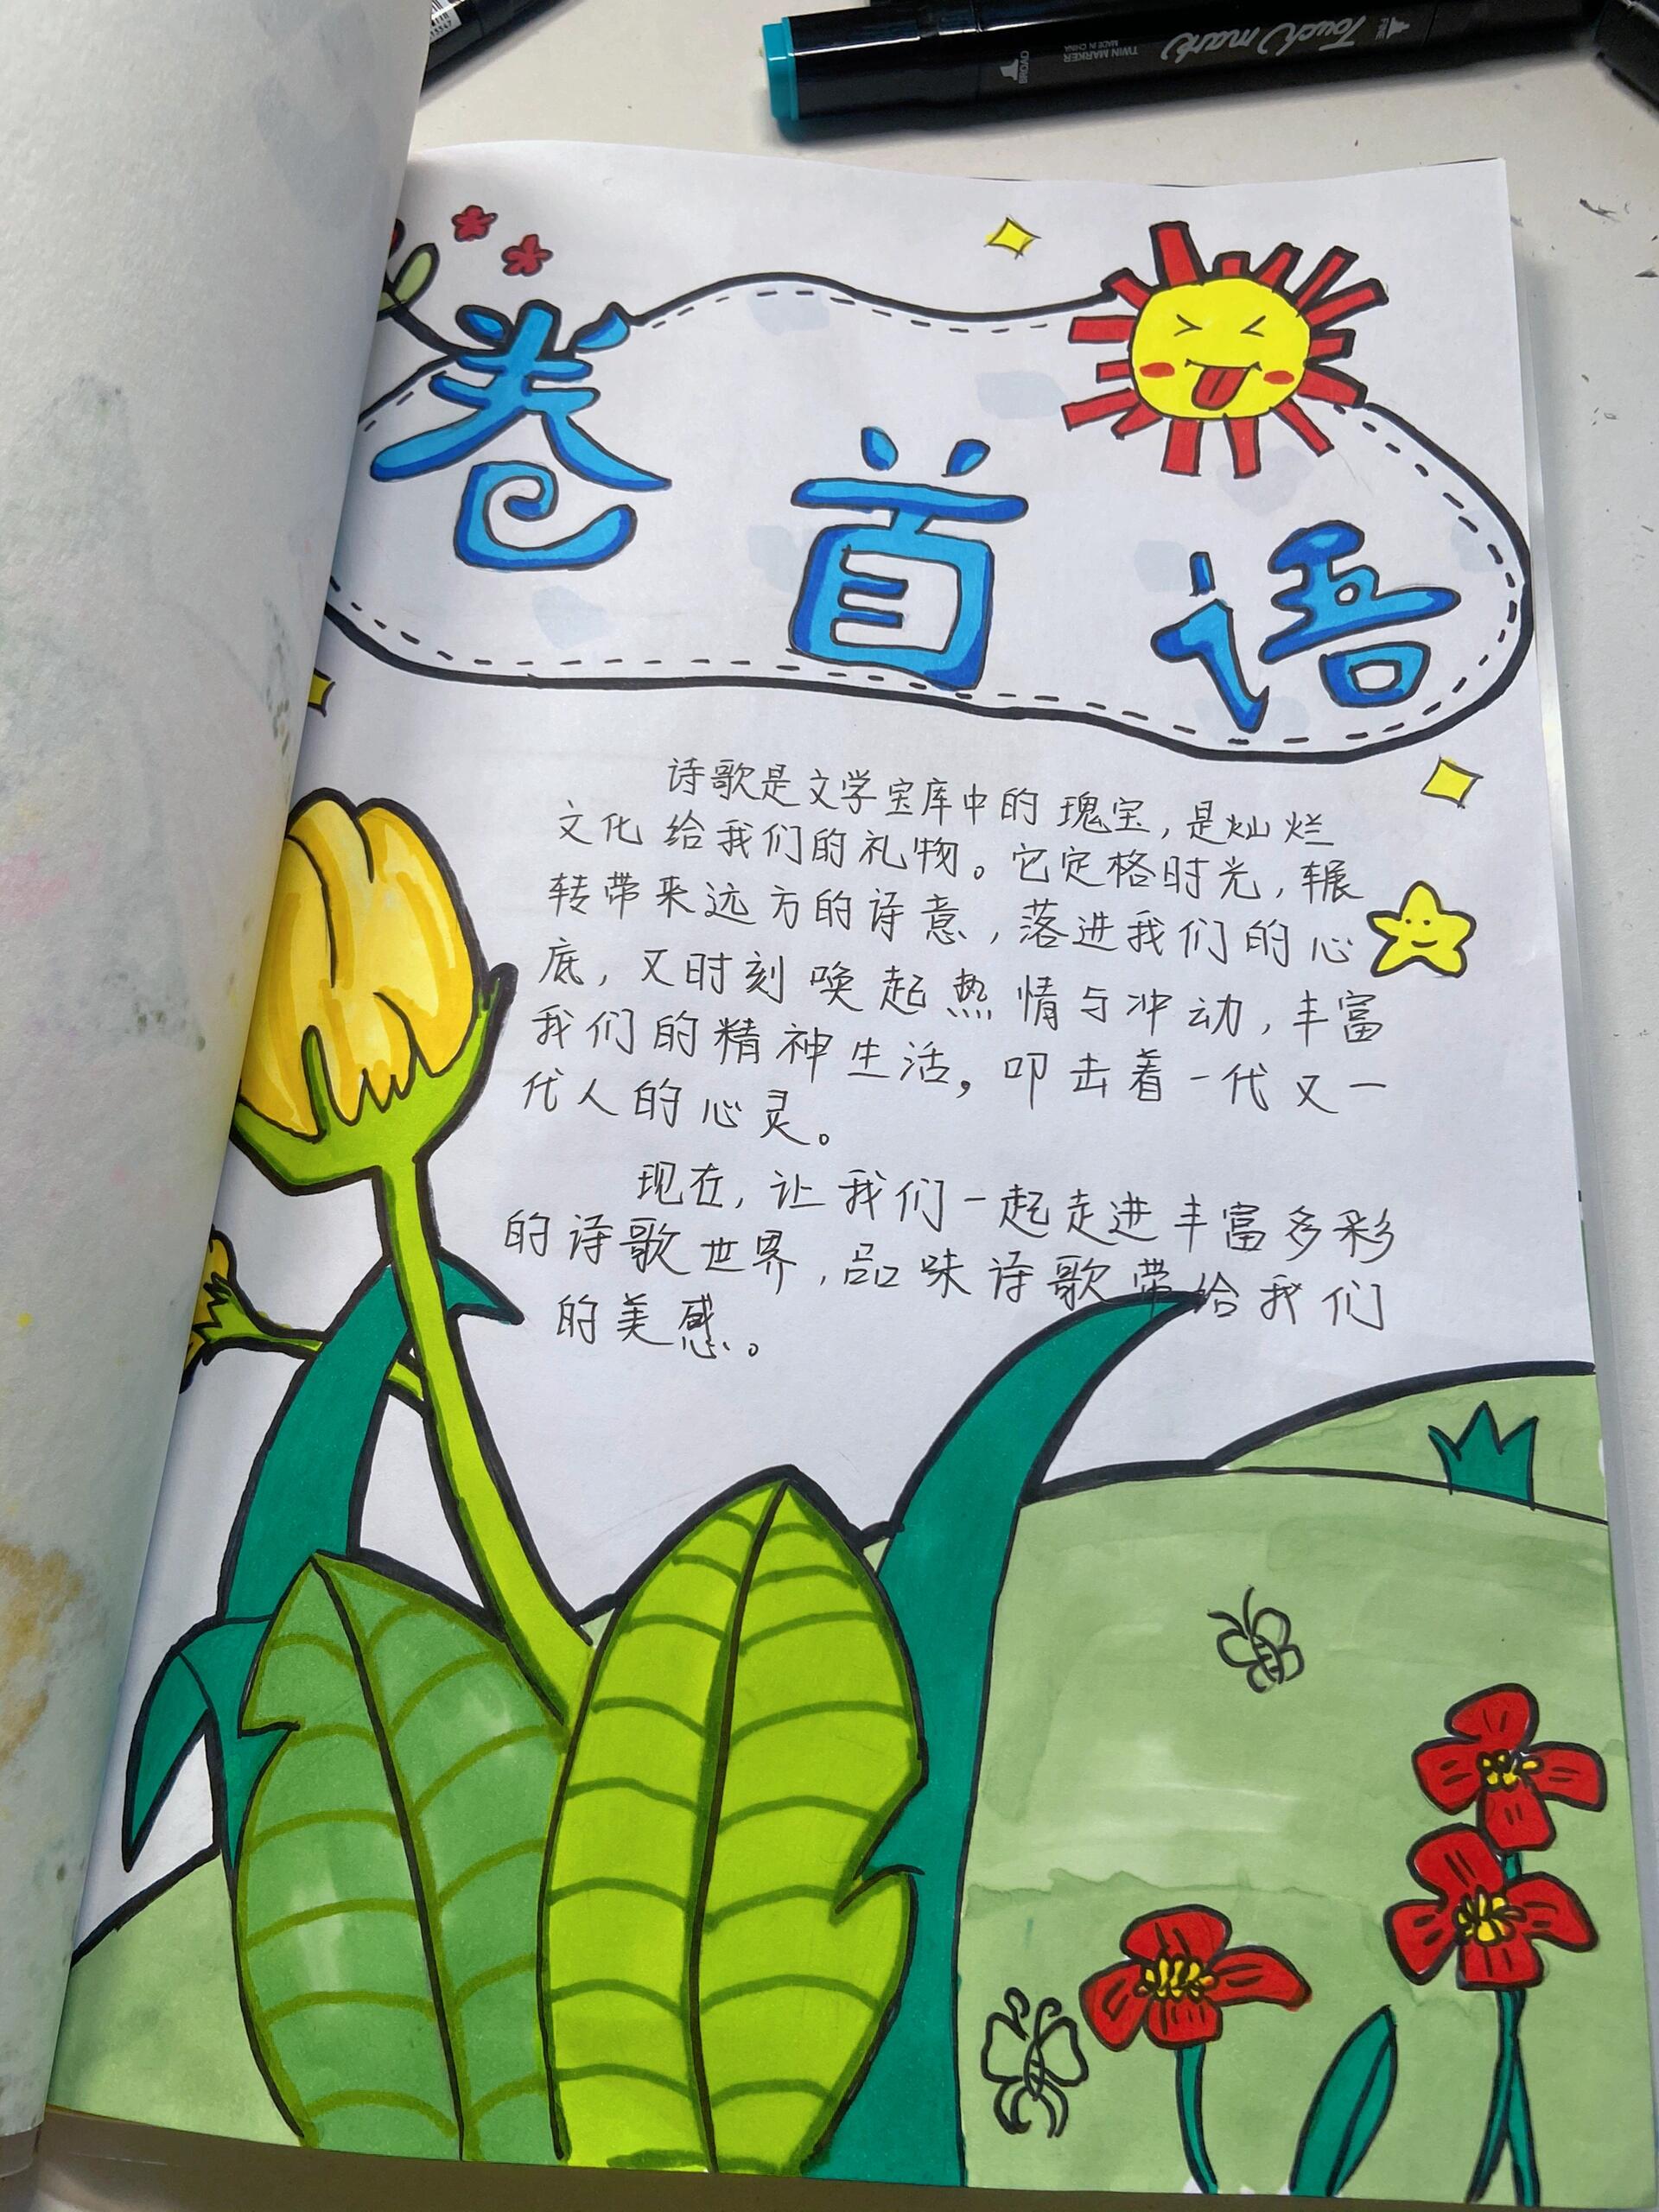 Touch mark
TWIN MARKER
MADE IN CHINA
BROAD
卷首语
诗歌是文学宝库中的瑰宝，是灿烂
文化给我们的礼物。它定格时光，辗
转带来远方的诗意，落进我们的心
底，又时刻唤起热情与冲动，丰富
我们的精神生活，叩击着一代又一
代人的心灵。
现在，让我们一起走进丰富多彩
的诗歌世界，品味诗歌带给我们
的美感。